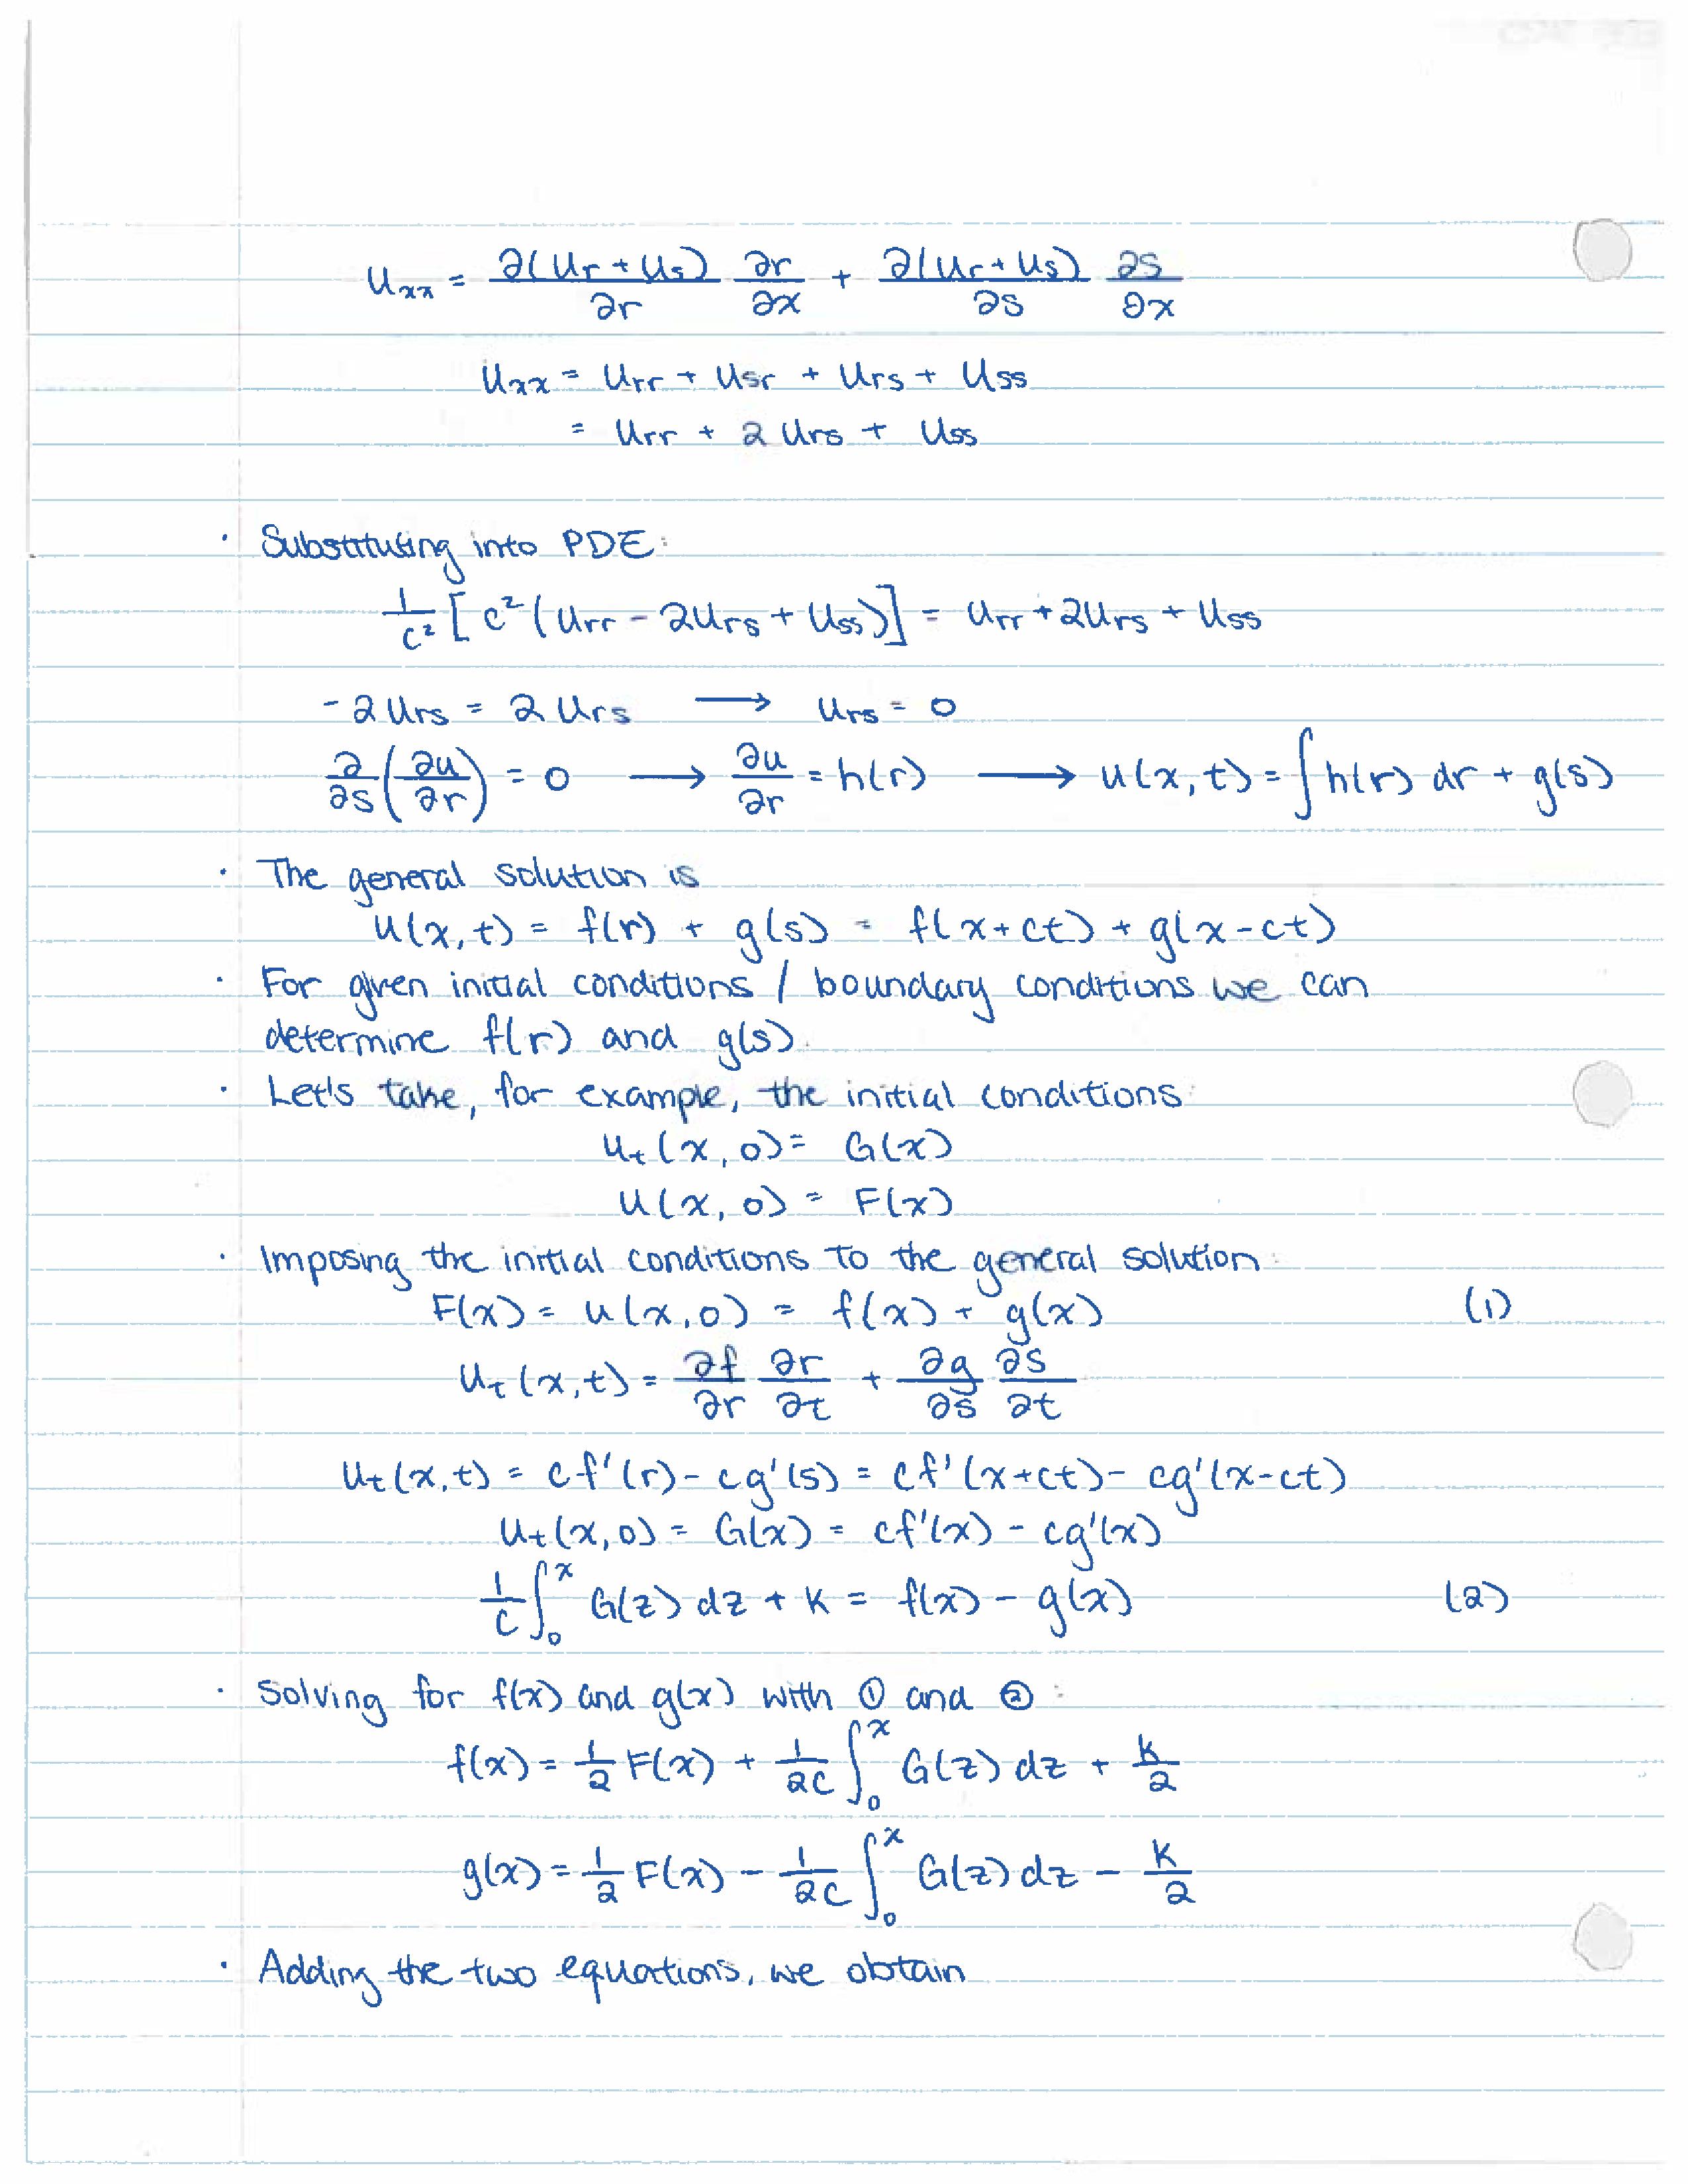 u_xx = ∂(u_r + u_s)/∂r ∂r/∂x + ∂(u_r + u_s)/∂s ∂s/∂x
u_xx = u_rr + u_sr + u_rs + u_ss
= u_rr + 2 u_rs + u_ss
· Substituting into PDE:
1/c² [c²(u_rr - 2u_rs + u_ss)] = u_rr + 2u_rs + u_ss
-2u_rs = 2u_rs ⟶ u_rs = 0
∂/∂s (∂u/∂r) = 0 ⟶ ∂u/∂r = h(r) ⟶ u(x,t) = ∫h(r) dr + g(s)
· The general solution is
u(x,t) = f(r) + g(s) = f(x+ct) + g(x-ct)
· For given initial conditions / boundary conditions we can
determine f(r) and g(s).
· Let's take, for example, the initial conditions:
u_t(x,0) = G(x)
u(x,0) = F(x)
· Imposing the initial conditions to the general solution:
F(x) = u(x,0) = f(x) + g(x) (1)
u_t(x,t) = ∂f/∂r ∂r/∂t + ∂g/∂s ∂s/∂t
u_t(x,t) = cf'(r) - cg'(s) = cf'(x+ct) - cg'(x-ct)
u_t(x,0) = G(x) = cf'(x) - cg'(x)
1/c ∫₀ˣ G(z) dz + K = f(x) - g(x) (2)
· Solving for f(x) and g(x) with ① and ②:
f(x) = 1/2 F(x) + 1/2c ∫₀ˣ G(z) dz + K/2
g(x) = 1/2 F(x) - 1/2c ∫₀ˣ G(z) dz - K/2
· Adding the two equations, we obtain